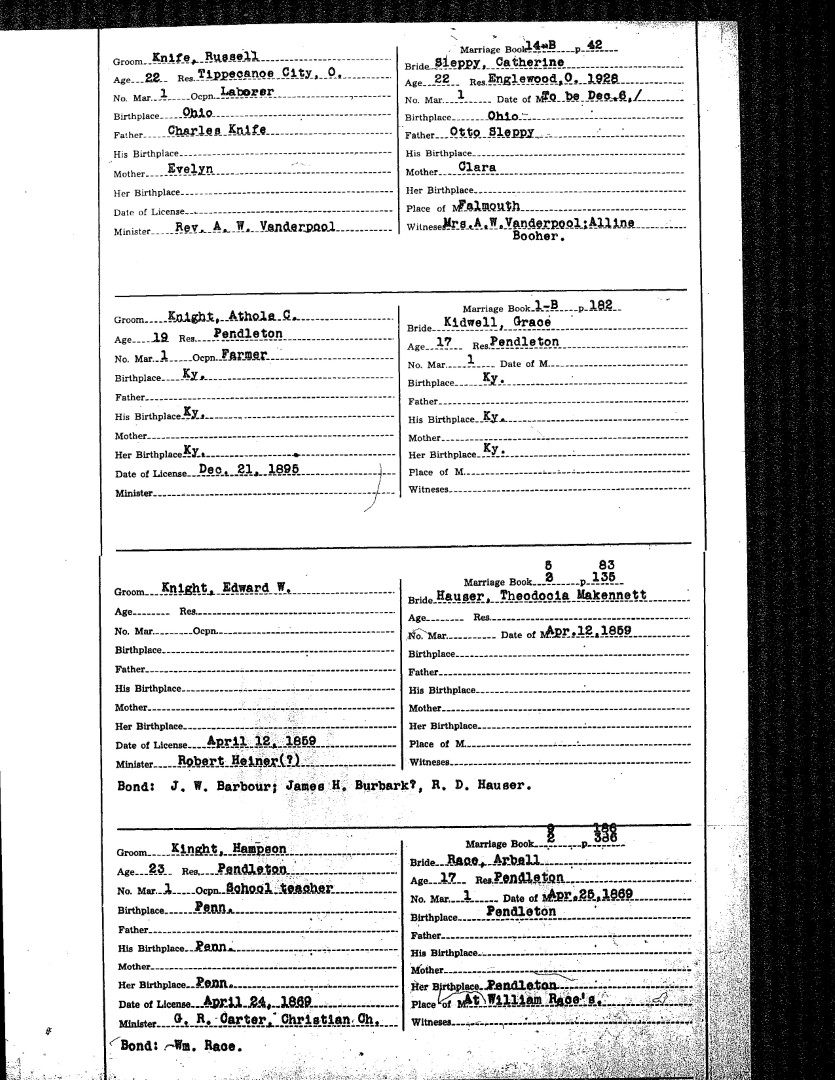 Groom Knife, Russell
Age 22 Res. Tippecanoe City, O.
No. Mar. 1 Ocpn. Laborer
Birthplace Ohio
Father Charles Knife
His Birthplace
Mother Evelyn
Her Birthplace
Date of License
Minister Rev. A. W. Vanderpool
Marriage Book 14-B p. 42
Bride Sleppy, Catherine
Age 22 Res. Englewood, O. 1928
No. Mar. 1 Date of M. To be Dec. 6,/
Birthplace Ohio
Father Otto Sleppy
His Birthplace
Mother Clara
Her Birthplace
Place of M. Falmouth
Witnesses Mrs. A. W. Vanderpool; Alline
Booher.
Groom Knight, Athola C.
Age 19 Res. Pendleton
No. Mar. 1 Ocpn. Farmer
Birthplace Ky.
Father
His Birthplace Ky.
Mother
Her Birthplace Ky.
Date of License Dec. 21, 1895
Minister
Marriage Book 1-B p. 182
Bride Kidwell, Grace
Age 17 Res. Pendleton
No. Mar. 1 Date of M.
Birthplace Ky.
Father
His Birthplace Ky.
Mother
Her Birthplace Ky.
Place of M.
Witnesses
Groom Knight, Edward W.
Age Res.
No. Mar. Ocpn.
Birthplace
Father
His Birthplace
Mother
Her Birthplace
Date of License April 12, 1859
Minister Robert Heiner(?)
5 83
Marriage Book 2 p. 135
Bride Hauser, Theodocia Makennett
Age Res.
No. Mar. Date of M. Apr. 12, 1859
Birthplace
Father
His Birthplace
Mother
Her Birthplace
Place of M.
Witnesses
Bond: J. W. Barbour; James H. Burbark?, R. D. Hauser.
Groom Kinght, Hampson
Age 23 Res. Pendleton
No. Mar. 1 Ocpn. School teacher
Birthplace Penn.
Father
His Birthplace Penn.
Mother
Her Birthplace Penn.
Date of License April 24, 1869
Minister G. R. Carter, Christian Ch.
Marriage Book 2 p.
Bride Race, Arbell
Age 17 Res. Pendleton
No. Mar. 1 Date of M. Apr. 25, 1869
Birthplace Pendleton
Father
His Birthplace
Mother
Her Birthplace Pendleton
Place of M. At William Race's.
Witnesses
Bond: Wm. Race.